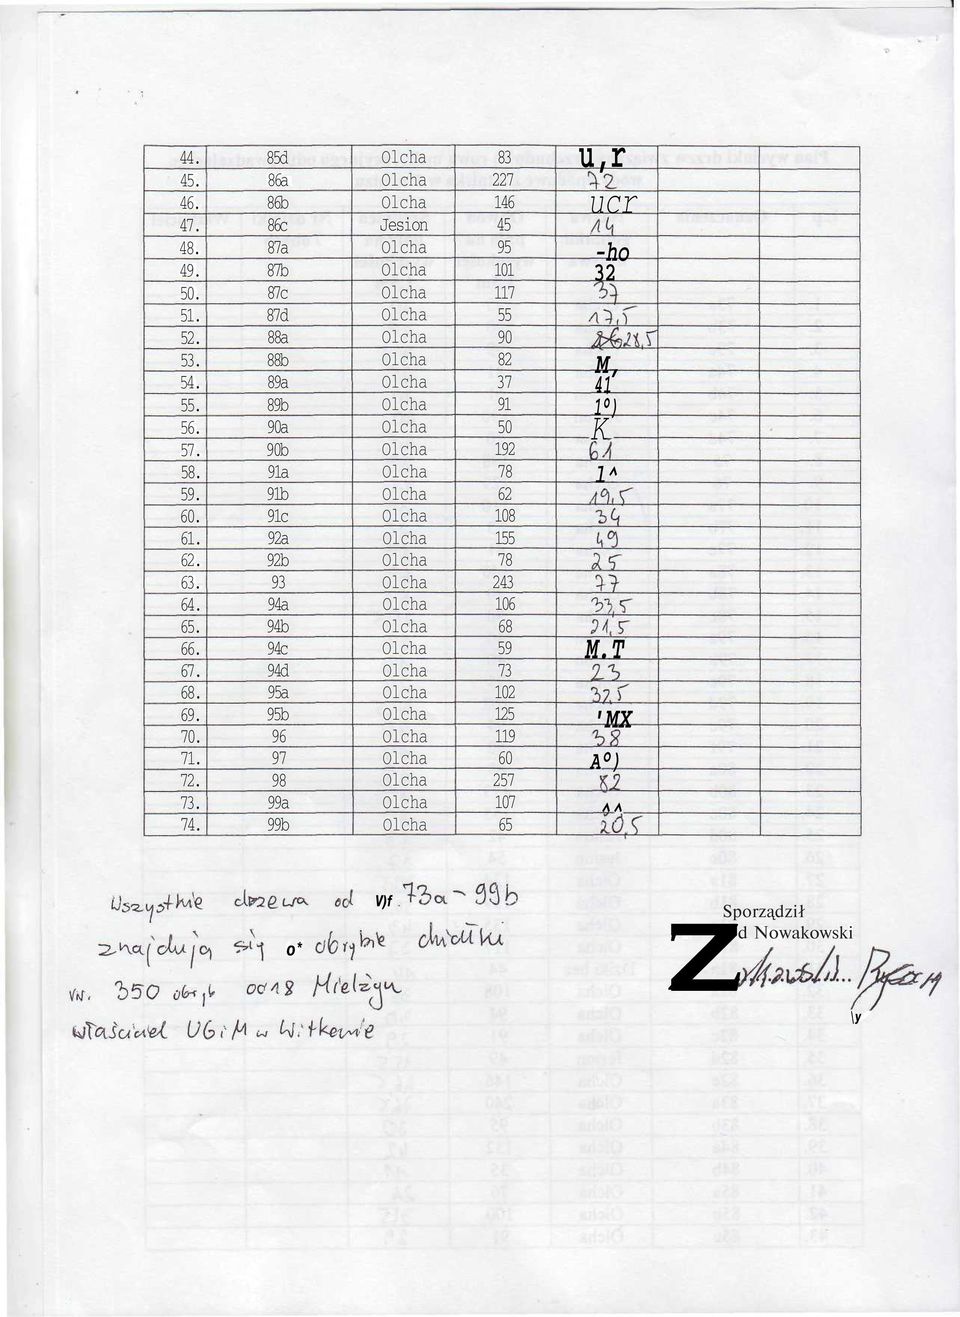 44. 85d Olcha 83 u,r
45. 86a Olcha 227 72
46. 86b Olcha 146 ucr
47. 86c Jesion 45 14
48. 87a Olcha 95 -ho
49. 87b Olcha 101 32
50. 87c Olcha 117 37
51. 87d Olcha 55 17,5
52. 88a Olcha 90 28,5
53. 88b Olcha 82 M,
54. 89a Olcha 37 41
55. 89b Olcha 91 1º)
56. 90a Olcha 50 K
57. 90b Olcha 192 61
58. 91a Olcha 78 1^
59. 91b Olcha 62 19,5
60. 91c Olcha 108 34
61. 92a Olcha 155 49
62. 92b Olcha 78 25
63. 93 Olcha 243 77
64. 94a Olcha 106 33,5
65. 94b Olcha 68 21,5
66. 94c Olcha 59 M.T
67. 94d Olcha 73 23
68. 95a Olcha 102 32,5
69. 95b Olcha 125 'MX
70. 96 Olcha 119 38
71. 97 Olcha 60 Aº)
72. 98 Olcha 257 82
73. 99a Olcha 107 ^^
74. 99b Olcha 65 20,5
Wszystkie drzewa od V)f. 73a - 99b
znajdują się o* obrębie działki
nr. 350 obręb 0018 Mielżyn
właściciel UGiM w Witkowie
Sporządził
Zd Nowakowski
Nowakowski... Ryszard
\y